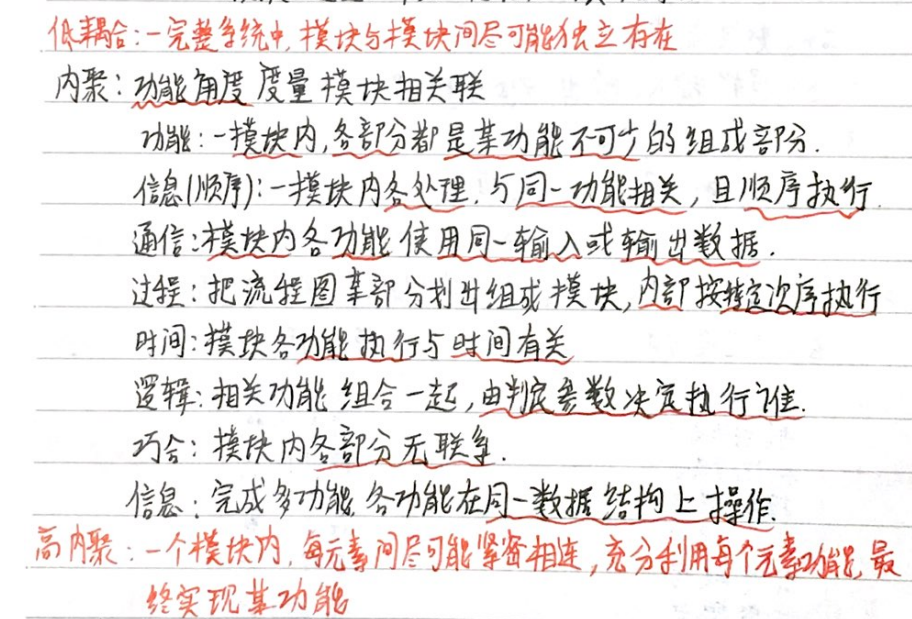 低耦合:一完整系统中,模块与模块间尽可能独立存在
内聚:功能角度度量模块相关联
功能:一模块内,各部分都是某功能不可少的组成部分.
信息(顺序):一模块内各处理,与同一功能相关,且顺序执行.
通信:模块内各功能使用同一输入或输出数据.
过程:把流程图某部分划出组成模块,内部按特定次序执行
时间:模块各功能执行与时间有关
逻辑:相关功能组合一起,由判定参数决定执行谁.
巧合:模块内各部分无联系.
信息:完成多功能,各功能在同一数据结构上操作.
高内聚:一个模块内,每元素间尽可能紧密相连,充分利用每个元素功能,最
终实现某功能